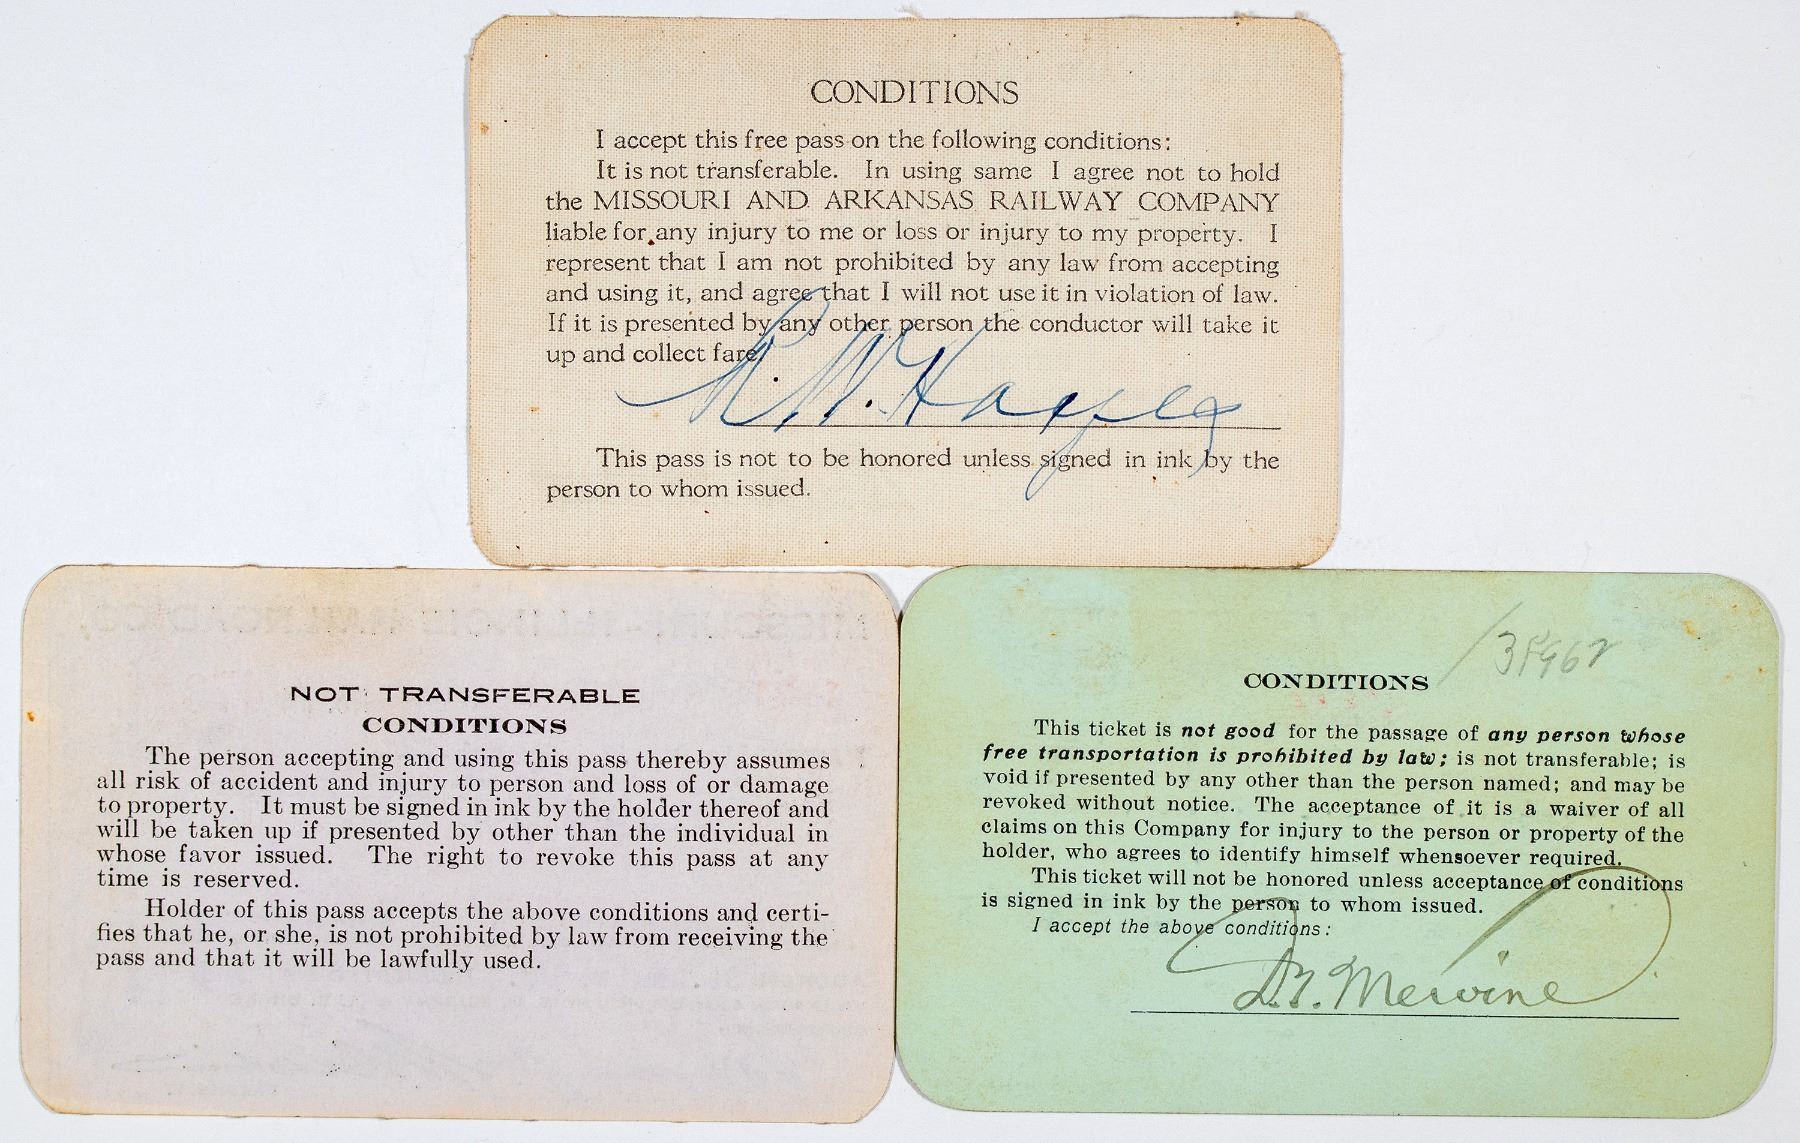 CONDITIONS
I accept this free pass on the following conditions:
It is not transferable. In using same I agree not to hold
the MISSOURI AND ARKANSAS RAILWAY COMPANY
liable for any injury to me or loss or injury to my property. I
represent that I am not prohibited by any law from accepting
and using it, and agree that I will not use it in violation of law.
If it is presented by any other person the conductor will take it
up and collect fare.
This pass is not to be honored unless signed in ink by the
person to whom issued.
NOT TRANSFERABLE
CONDITIONS
The person accepting and using this pass thereby assumes
all risk of accident and injury to person and loss of or damage
to property. It must be signed in ink by the holder thereof and
will be taken up if presented by other than the individual in
whose favor issued. The right to revoke this pass at any
time is reserved.
Holder of this pass accepts the above conditions and certi-
fies that he, or she, is not prohibited by law from receiving the
pass and that it will be lawfully used.
CONDITIONS
This ticket is not good for the passage of any person whose
free transportation is prohibited by law; is not transferable; is
void if presented by any other than the person named; and may be
revoked without notice. The acceptance of it is a waiver of all
claims on this Company for injury to the person or property of the
holder, who agrees to identify himself whensoever required.
This ticket will not be honored unless acceptance of conditions
is signed in ink by the person to whom issued.
I accept the above conditions:
Mervine